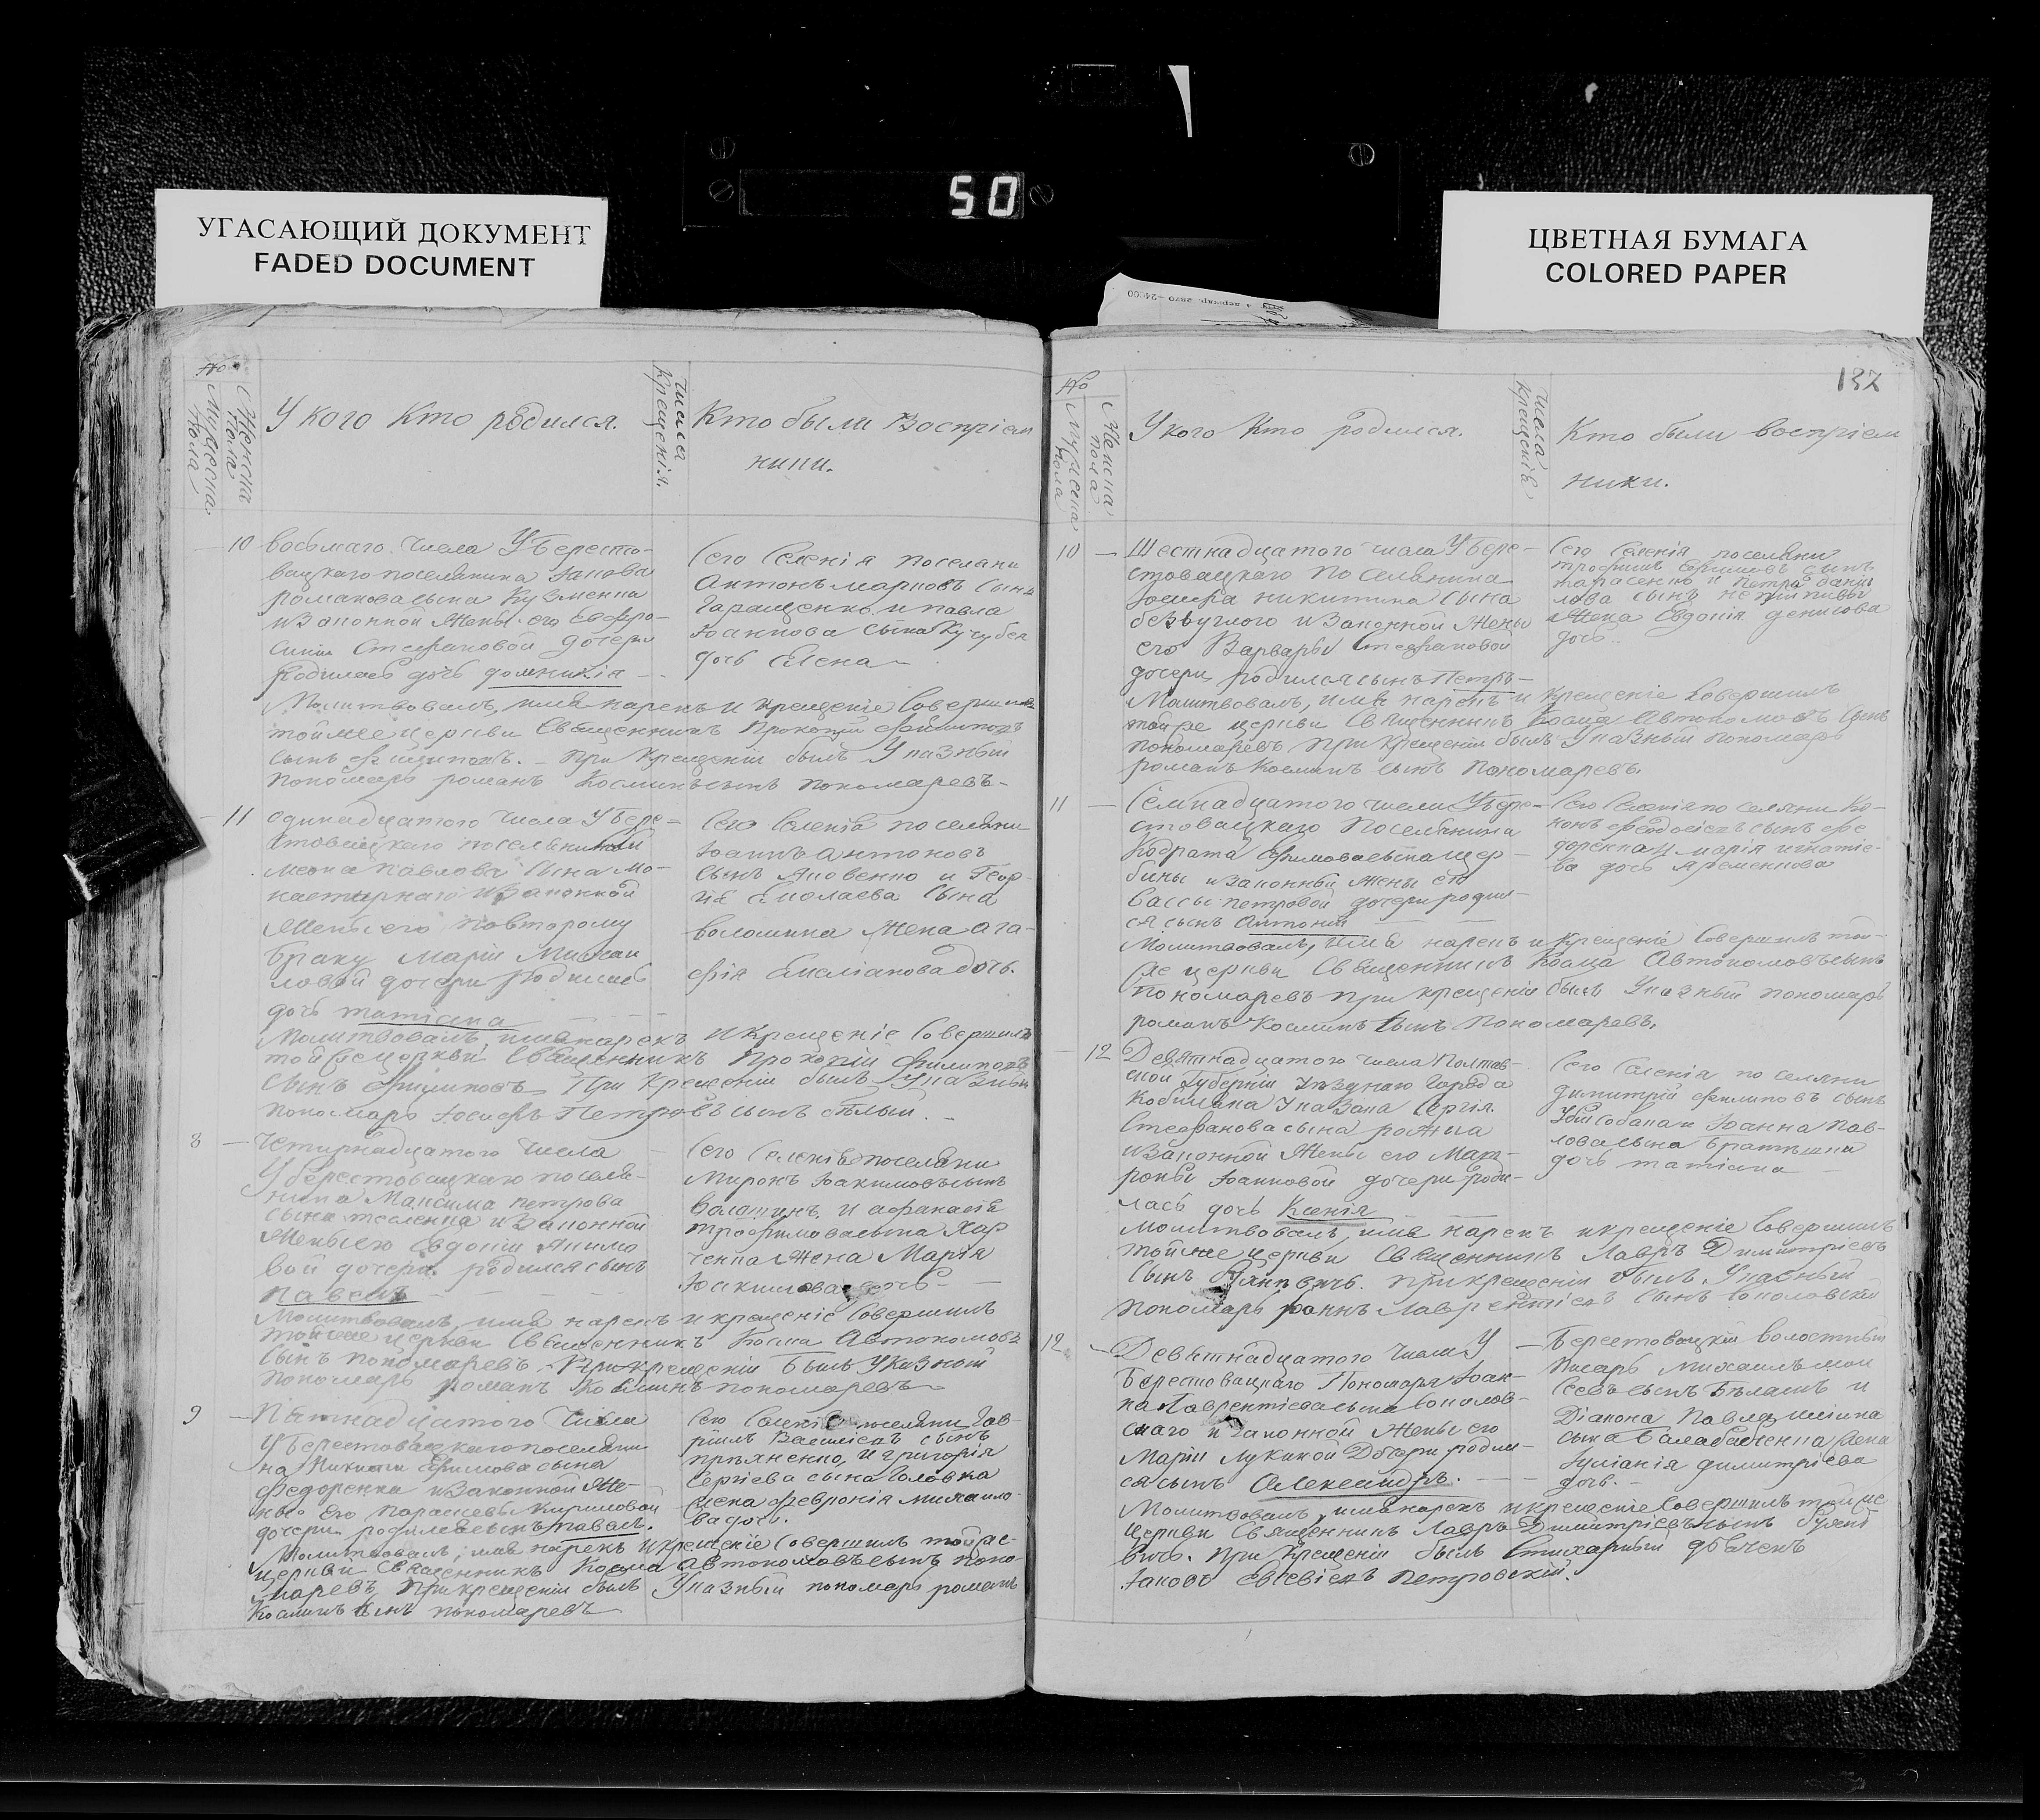 50
УГАСАЮЩИЙ ДОКУМЕНТ
FADED DOCUMENT
ЦВЕТНАЯ БУМАГА
COLORED PAPER
№
Мужеска пола
Женска пола
У кого Кто родился.
Числа Крещенія.
Кто были Воспріем
ники.
10 восьмаго числа У Бересто-
вацкаго поселянина Іакова
романова сына Кузменка
и Законной Жены его Евфро-
синіи Стефановой дочери
Родилась дочь домникія
Сего Селенія поселяни
Антонъ марковъ сынъ
Гаращенко и павла
Іоаннова сына Кучубея
дочь Елена
Молитвовалъ, имя нарекъ и крещеніе Совершилъ
тойже церкви Священникъ Прокопій филиповъ
сынъ филиповъ. При Крещеніи былъ Указный
Пономарь романъ Косминъ сынъ пономаревъ
11 одинадцатого числа У Бере-
стовацкаго поселянина
павлова сына Мо-
настырнаго и Законной
Жены его повторому
браку Маріи Михаи
ловой дочери родилась
дочь татіана
Сего Селенія поселяни
Іоаннъ антоновъ
сынъ Яковенко и Геор-
гія Ермолаева сына
волошина жена ага-
фія Емеліанова дочь.
Молитвовалъ, имя нарекъ и Крещеніе Совершилъ
тойже церкви Священникъ Прокопій филиповъ
сынъ филиповъ При Крещеніи былъ Указный
пономарь Іосифъ Петровъ сынъ бѣлый.
8 Четирнадцатого числа
У берестовацкаго поселя-
нина Максима петрова
сына тесленка и Законной
Жены его Евдокіи Якимо
вой дочери родился сынъ
павелъ
Сего Селенія поселяни
Миронъ Іоакимовъ сынъ
Калашникъ и афанасія
трофимова сына Хар
ченка Жена Марія
Іоакимова дочь
Молитвовалъ, имя нарекъ и крещеніе Совершилъ
тойже церкви Священникъ Косма Автономовъ
сынъ пономаревъ При крещеніи былъ Указный
пономарь романъ Косминъ пономаревъ
9 Пятнадцатого числа
У Берестовацкаго поселяни
на Никиты Ефимова сына
Федоренка и Законной Же-
ны его параскевы Кириловой
дочери родился сынъ павелъ.
Сего Селенія поселяни Гав-
риилъ Василіевъ сынъ
пряженко, и григорія
Сергіева сына Головка
жена февронія михаило-
ва дочь.
Молитвовалъ, имя нарекъ и крещеніе Совершилъ тойже
церкви Священникъ Косма Автономовъ сынъ поно-
маревъ, При крещеніи былъ Указный пономарь романъ
Косминъ сынъ пономаревъ
132
№
Мужеска пола
Женска пола
У кого Кто родился.
Числа Крещенія
Кто были воспріем
ники.
10 Шестнадцатого числа У Бере-
стовацкаго поселянина
Іосифа никитина сына
безуглого и Законной Жены
его Варвары Стефановой
дочери родился сынъ Петръ
Сего Селенія поселяни
трофимъ Ефимовъ сынъ
тарасенко и петра дани
лова сынъ
Жена Евдокія денисова
дочь
Молитвовалъ, имя нарекъ и крещеніе Совершилъ
тойже церкви Священникъ Косма Автономовъ сынъ
пономаревъ при крещеніи былъ Указный пономарь
романъ Косминъ сынъ пономаревъ.
11 Семнадцатого числа У Бере-
стовацкаго Поселянина
Кодрата Ефимова сына щер
бины и Законной жены его
Вассы петровой дочери родил-
ся сынъ Антоній
Сего Селенія поселяни Ко-
нонъ феодосіевъ сынъ фе
доренка и марія игнатіе-
ва дочь Яременкова
Молитвовалъ, имя нарекъ и крещеніе Совершилъ той-
же церкви Священникъ Косма Автономовъ сынъ
пономаревъ при крещеніи былъ Указный пономарь
романъ Косминъ сынъ пономаревъ.
12 Девятнадцатого числа Полтав-
ской Губерніи Уезднаго города
Кобиляка Сергія
Стефанова сына
и Законной Жены его Мат-
роны Іоанновой дочери роди-
лась дочь Ксенія
Сего Селенія поселяни
димитрій филиповъ сынъ
Убійсобака и Іоанна пав-
лова сына братишка
дочь татіана
Молитвовалъ, имя нарекъ и крещеніе Совершилъ
тойже церкви Священникъ Лавръ Димитріевъ
сынъ При крещеніи былъ Указный
пономарь Іоаннъ Лаврентіевъ сынъ Соколовскій
12 Девятнадцатого числа У
Берестовацкаго Пономаря Іоан-
на Лаврентіева сына Соколов-
скаго и Законной Жены его
Маріи Лукиной Дочери родил-
ся сынъ Александръ.
Берестовацкій волостный
Писарь Михаилъ мои
сеевъ сынъ Бѣлашъ и
Діакона Павла иліина
сына Балабасченка Жена
Іуліанія димитріева
дочь.
Молитвовалъ, имя нарекъ и крещеніе Совершилъ тойже
церкви Священникъ Лавръ Димитріевъ сынъ
При Крещеніи былъ Стихарный дьячекъ
Іаковъ Евсевіевъ Петровскій.